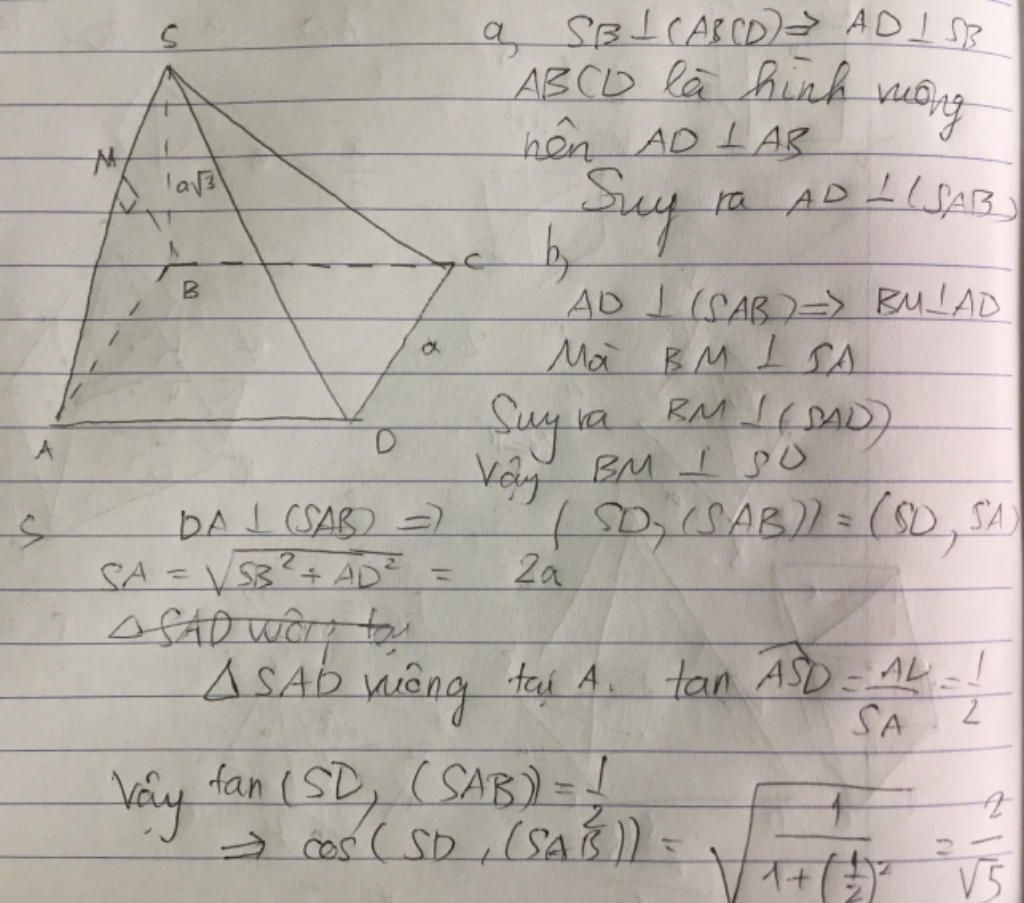 S
M
a√3
B
C
a
A
D
a, SB ⊥ (ABCD) ⇒ AD ⊥ SB
ABCD là hình vuông
nên AD ⊥ AB
Suy ra AD ⊥ (SAB)
b,
AD ⊥ (SAB) ⇒ BM ⊥ AD
Mà BM ⊥ SA
Suy ra BM ⊥ (SAD)
Vậy BM ⊥ SD
S DA ⊥ (SAB) ⇒ (SD, (SAB)) = (SD, SA)
SA = √(SB² + AD²) = 2a
Δ SAD vuông tại
Δ SAD vuông tại A. tan ASD = AD/SA = 1/2
Vậy tan (SD, (SAB)) = 1/2
⇒ cos (SD, (SAB)) = √(1/(1+(1/2)²)) = 2/√5